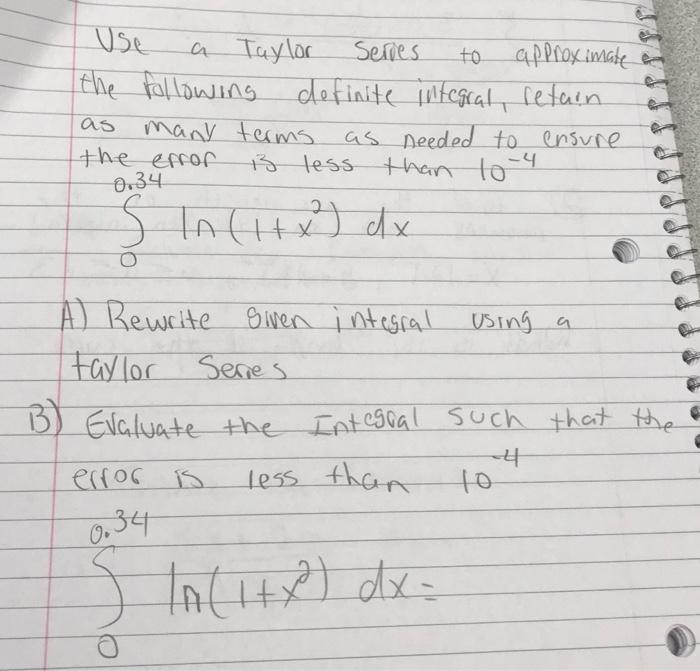 Use a Taylor Series to approximate
the following definite integral, retain
as many terms as needed to ensure
the error is less than 10^-4
0.34
∫ ln(1+x²) dx
0
A) Rewrite given integral using a
taylor Series
B) Evaluate the Integral such that the
error is less than 10^-4
0.34
∫ ln(1+x²) dx=
0